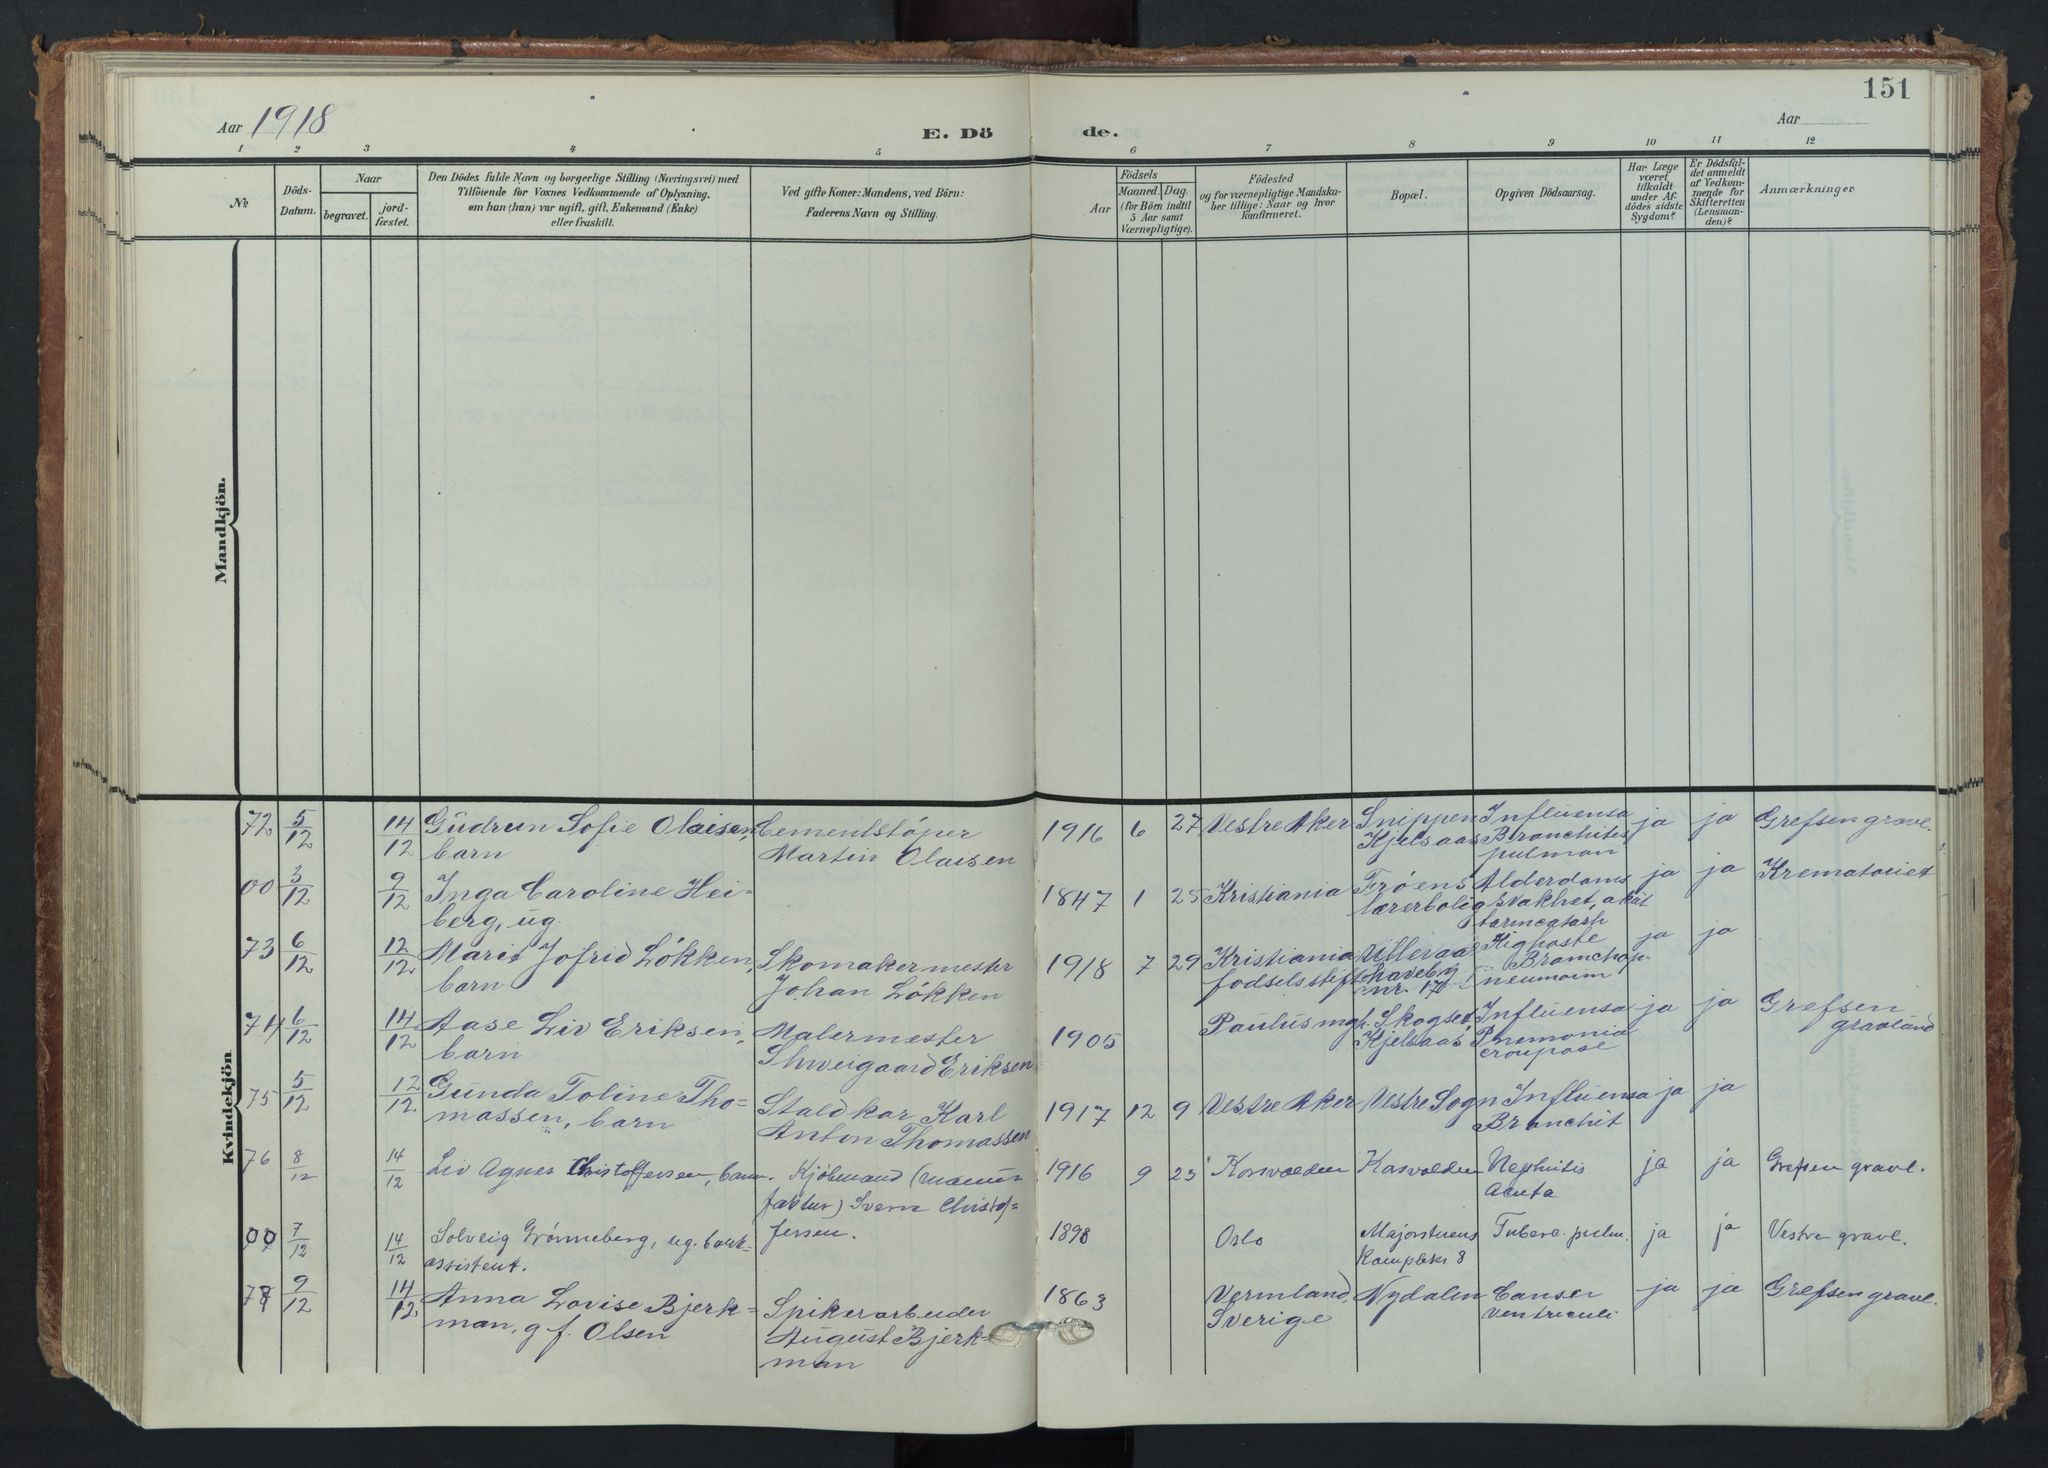 151
Aar 1918
E. Dö
de.
Aar
1 2 3 4 5 6 7 8 9 10 11 12
No
Döds-
Datum.
Naar
begravet.
jord-
fæstet.
Den Dödes fulde Navn og borgerlige Stilling (Næringsvei) med
Tilföiende for Voxnes Vedkommende af Oplysning,
om han (hun) var ugift, gift, Enkemand (Enke)
eller fraskilt.
Ved gifte Koner: Mandens, ved Börn:
Faderens Navn og Stilling.
Födsels
Aar
Maaned.
Dag.
(for Börn indtil
5 Aar samt
Værnepligtige).
Födested
og for værnepligtige Mandska-
ber tillige: Naar og hvor
konfirmeret.
Bopæl.
Opgiven Dödsaarsag.
Har Læge
været
tilkaldt
under Af-
dödes sidste
Sygdom?
Er Dödsfal-
det anmeldt
af Vedkom-
mende for
Skifteretten
(Lensman-
den)?
Anmærkninger
Mandkjön.
Kvindekjön
72 5/12 14/12 Gudrun Sofie Olaisen,
barn
Cementstöper
Martin Olaisen
1916 6 27 Vestre Aker
Snippen
Kjelsaas
Influensa
Branchites
pulmon
ja ja Grefsen gravl.
00 3/12 9/12 Inga Caroline Hei-
berg, ug.
1847 1 25 Kristiania
Fröens
lærerbolig
Alderdoms
svakhet, akut
tarmcatarh
ja ja Krematoriet
73 6/12 12/12 Marie Jofrid Lökken,
barn
Skomakermester
Johan Lökken
1918 7 29 Kristiania
födselsstift
Ullevaal
haveby
nr. 170
Kighoste
Branchop-
neumoim
ja ja
74 6/12 14/12 Aase Liv Eriksen,
barn
Malermester
Shweigaard Eriksen
1905 Paulus mgh.
Skogset,
Kjelsaas
Influensa
Pnemonia
croupose
ja ja Grefsen
gravlund
75 5/12 12/12 Gunda Toline Tho-
massen, barn
Staldkar Karl
Anton Thomassen
1917 12 9 Vestre Aker Vestre Sogn
Influensa
Branchit
ja ja
76 8/12 14/12 Liv Agnes Christoffersen, barn.
Kjöbmand (manu-
faktur) Svern Christof-
fersen.
1916 9 23 Korsvolden Korsvolden
Nephritis
Acuta
ja ja Grefsen gravl.
00 7/12 14/12 Solveig Grønneberg, ug. bank-
assistent.
1898 Oslo
Majorstuens
Kompleks 8
Taberc. pulm. ja ja Vestre gravl.
77 9/12 14/12 Anna Lovise Bjerk-
man, g. f. Olsen
Spikerarbeider
August Bjerk-
man
1863 Vermland,
Sverige
Nydalen
Canser
ventriculi
ja ja Grefsen gravl.